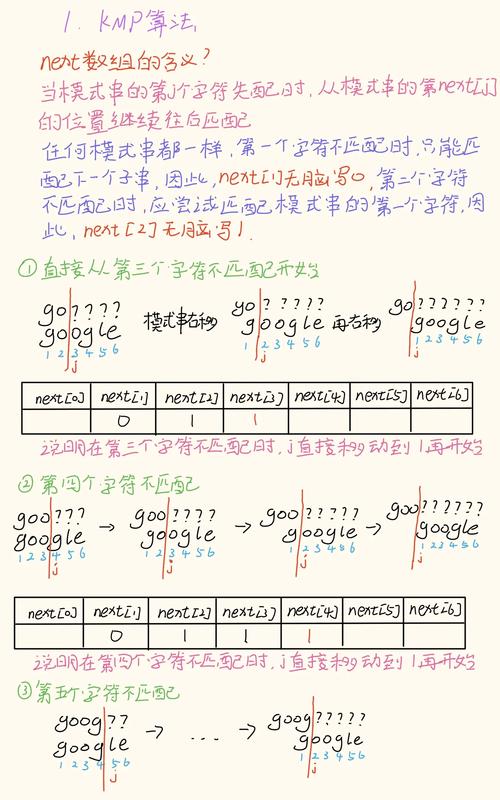 1. KMP算法
next数组的含义?
当模式串的第j个字符失配时,从模式串的第next[j]
的位置继续往后匹配
任何模式串都一样,第一个字符不匹配时,只能匹
配下一个子串,因此,next[1]无脑写0,第二个字符
不匹配时,应尝试匹配模式串的第一个字符,因
此,next[2]无脑写1.
①直接从第三个字符不匹配开始
go???? 模式串右移 go????? 再右移 go??????
google google google
1 2 3 4 5 6 1 2 3 4 5 6 1 2 3 4 5 6
j j j
next[0] next[1] next[2] next[3] next[4] next[5] next[6]
0 1 1
说明在第三个字符不匹配时,j直接移动到1再开始
②第四个字符不匹配
goo??? → goo???? → goo????? → goo??????
google google google google
1 2 3 4 5 6 1 2 3 4 5 6 1 2 3 4 5 6 1 2 3 4 5 6
j j j j
next[0] next[1] next[2] next[3] next[4] next[5] next[6]
0 1 1 1
说明在第四个字符不匹配时,j直接移动到1再开始
③第五个字符不匹配
goog?? → ... → goog?????
google google
1 2 3 4 5 6 1 2 3 4 5 6
j j